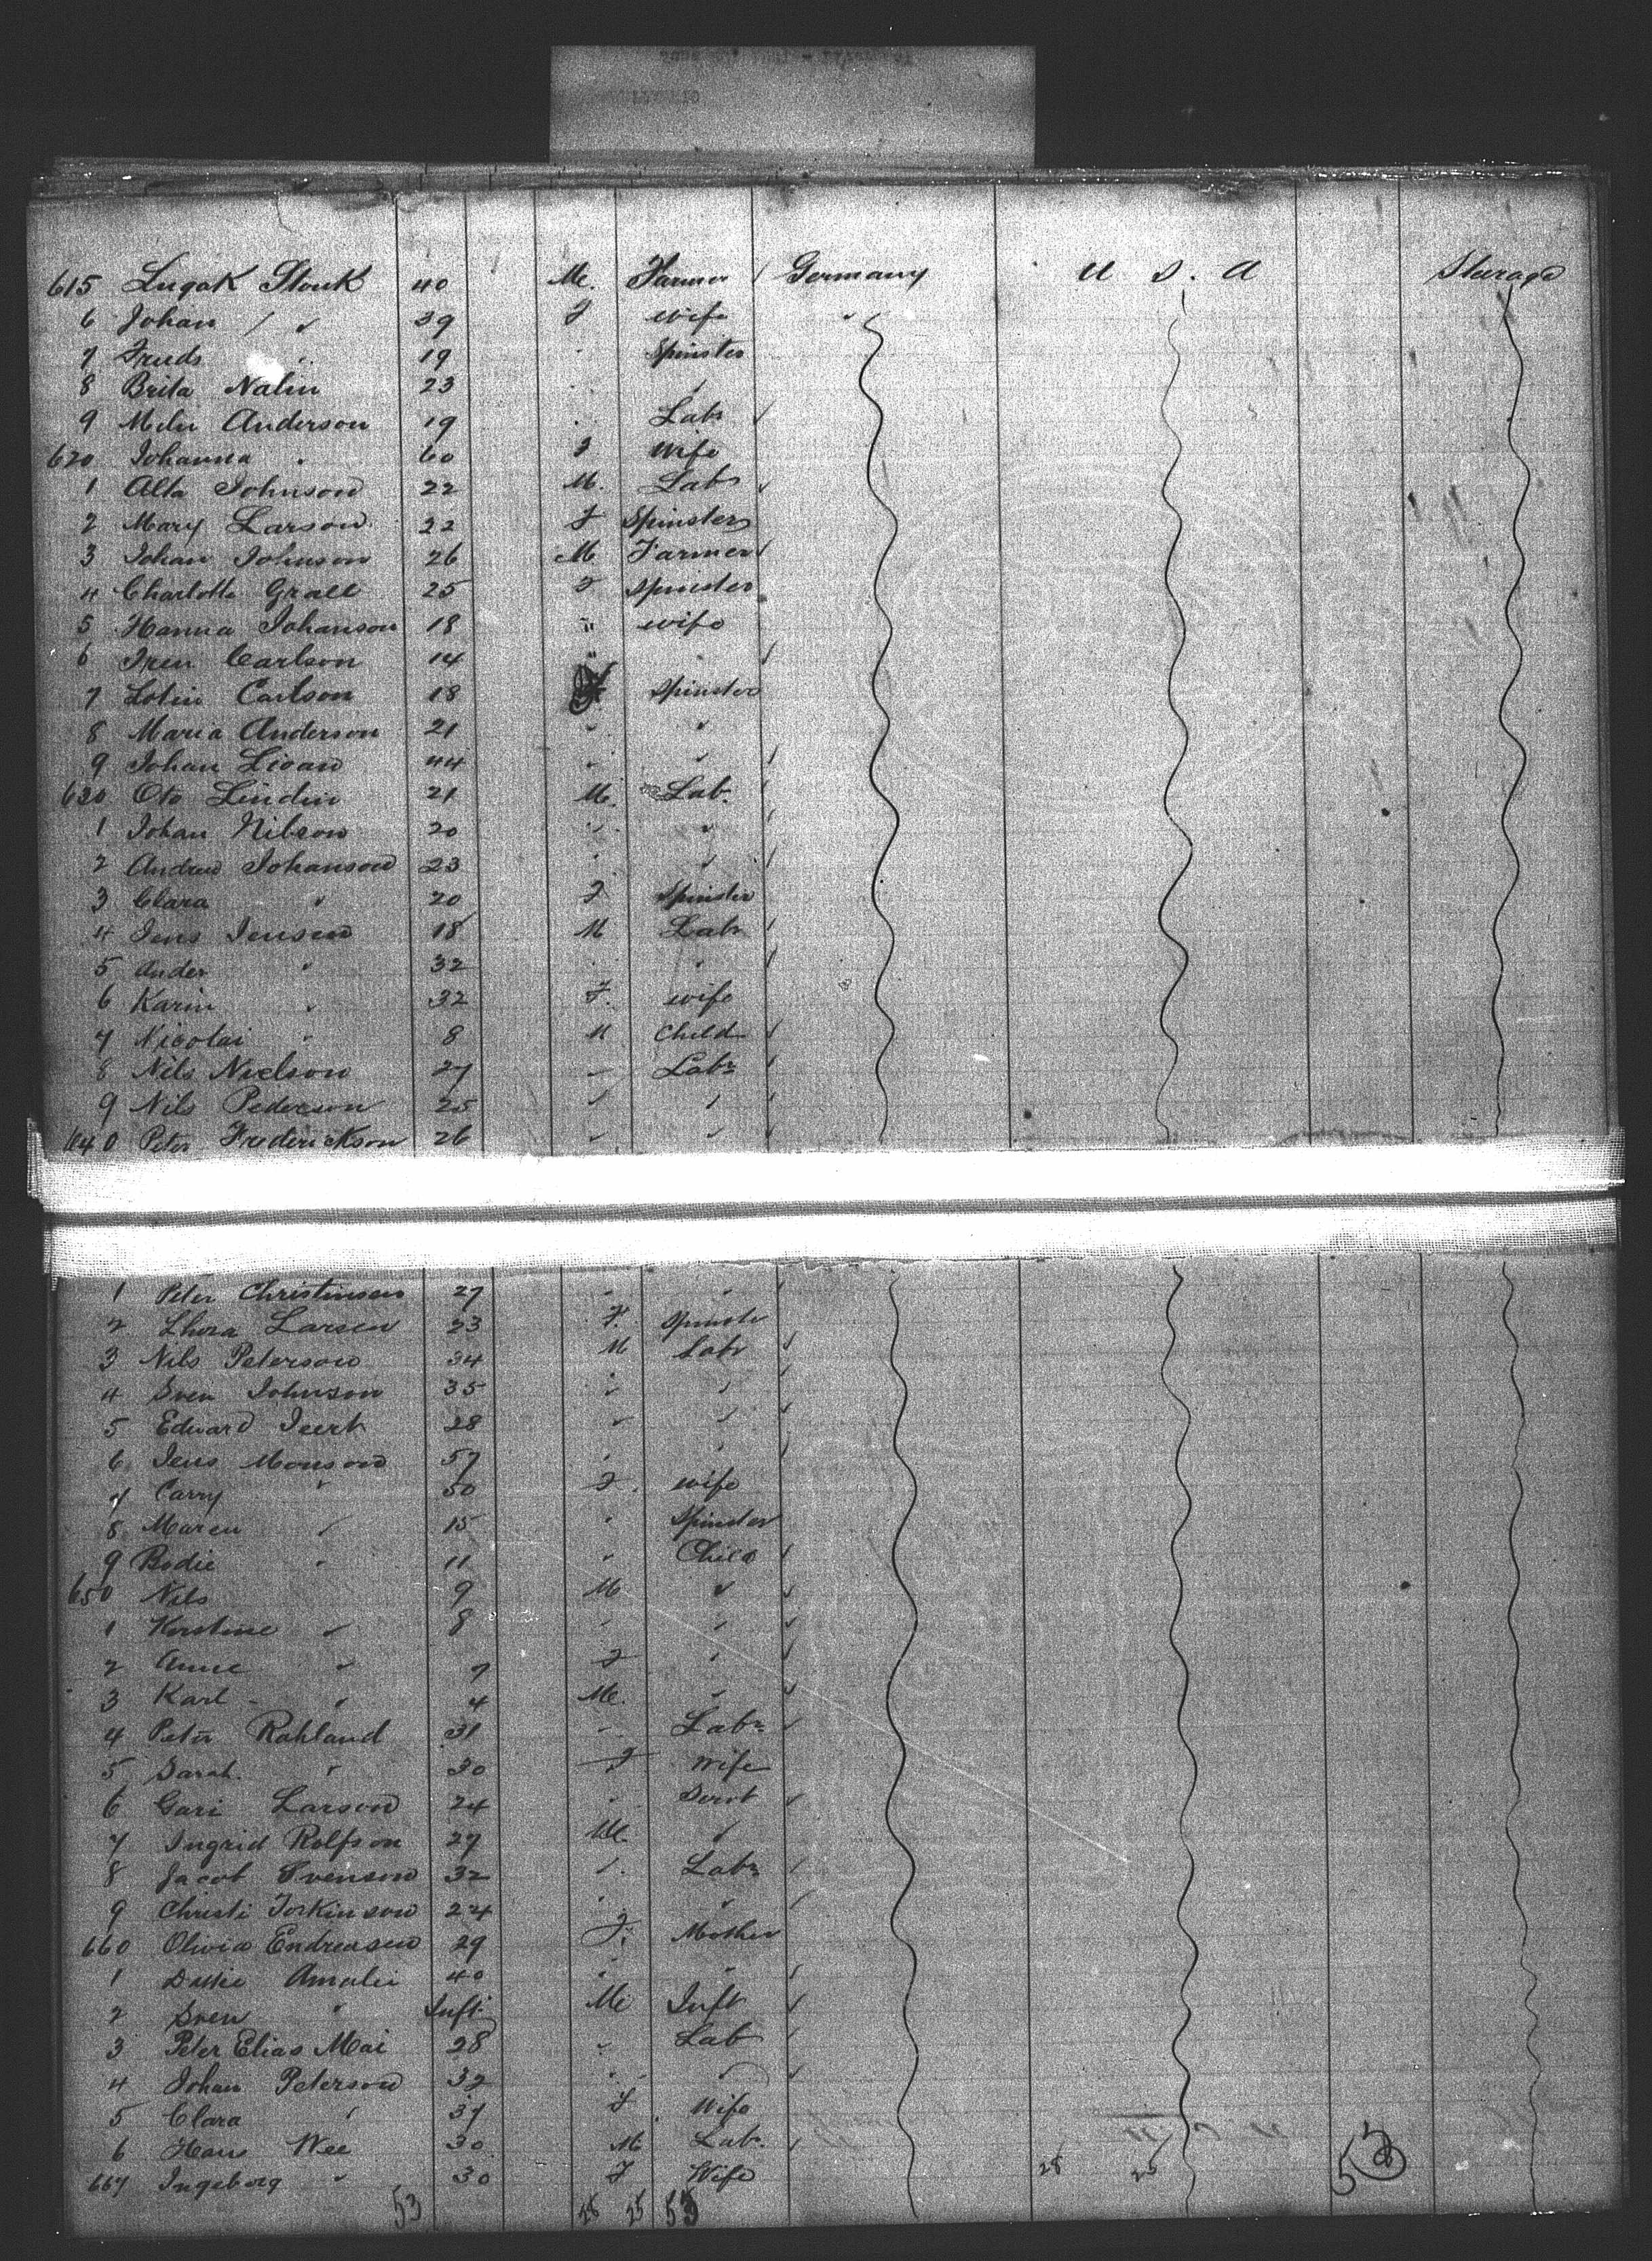 615 Lugak Stouk 40 M. Farmer / Germany U S. A Steerage
6 Johan / " 39 F wife "
7 Truds " 19 " Spinster
8 Brita Nalin 23 " "
9 Anderson 19 " Labr
620 Johanna " 60 F Wife
1 Alta Johnson 22 M. Labr
2 Mary Larson 22 F Spinster
3 Johan Johnson 26 M Farmer
4 Charlotte Grall 25 F Spinster
5 Hanna Johanson 18 " wife
6 Carlson 14 " "
7 Lotin Carlson 18 F Spinster
8 Maria Anderson 21 " "
9 Johan 44 " "
630 Oto Lindin 21 M. Lab.
1 Johan Nilson 20 " "
2 Andrew Johanson 23 " "
3 Clara " 20 F Spinster
4 Jens Jensen 18 M Labr
5 Ander " 32 " "
6 Karin " 32 F. wife
7 Nicolai " 8 M Child
8 Nils Nielson 27 " Labr
9 Nils Pederson 25 " "
640 Peter Frederickson 26 " "
1 Peter Christinsen 27 " "
2 Thora Larsen 23 F. Spinster
3 Nils Peterson 34 M Labr
4 Sven Johnson 35 " "
5 Edward 28 " "
6 Jens Monson 57 " "
7 Carry " 50 F. wife
8 Maren " 15 " Spinster
9 Bodie " 11 " Child
650 Nils 9 M "
1 Kerstine " 8 " "
2 Anne " 7 F "
3 Karl " 4 M. "
4 Peter Rahland 31 " Labr
5 Sarah. " 30 F Wife
6 Gari Larson 24 " Servt
7 Ingrid Rolfson 27 M. "
8 Jacob Svenson 32 " Labr
9 Christi Torkinson 24 " "
660 Olivia Endreasen 29 F. Mother
1 Amalie 40 " "
2 Sven " Inft. M Inft
3 Peter Elias Mai 28 " Lab
4 Johan Peterson 32 " "
5 Clara " 37 F Wife
6 Hans Wee 30 M Lab.
667 Ingeborg " 30 F Wife 28 25 53
53 28 25 53